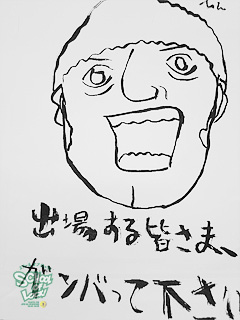 出場する皆さま、
ガンバって下さい